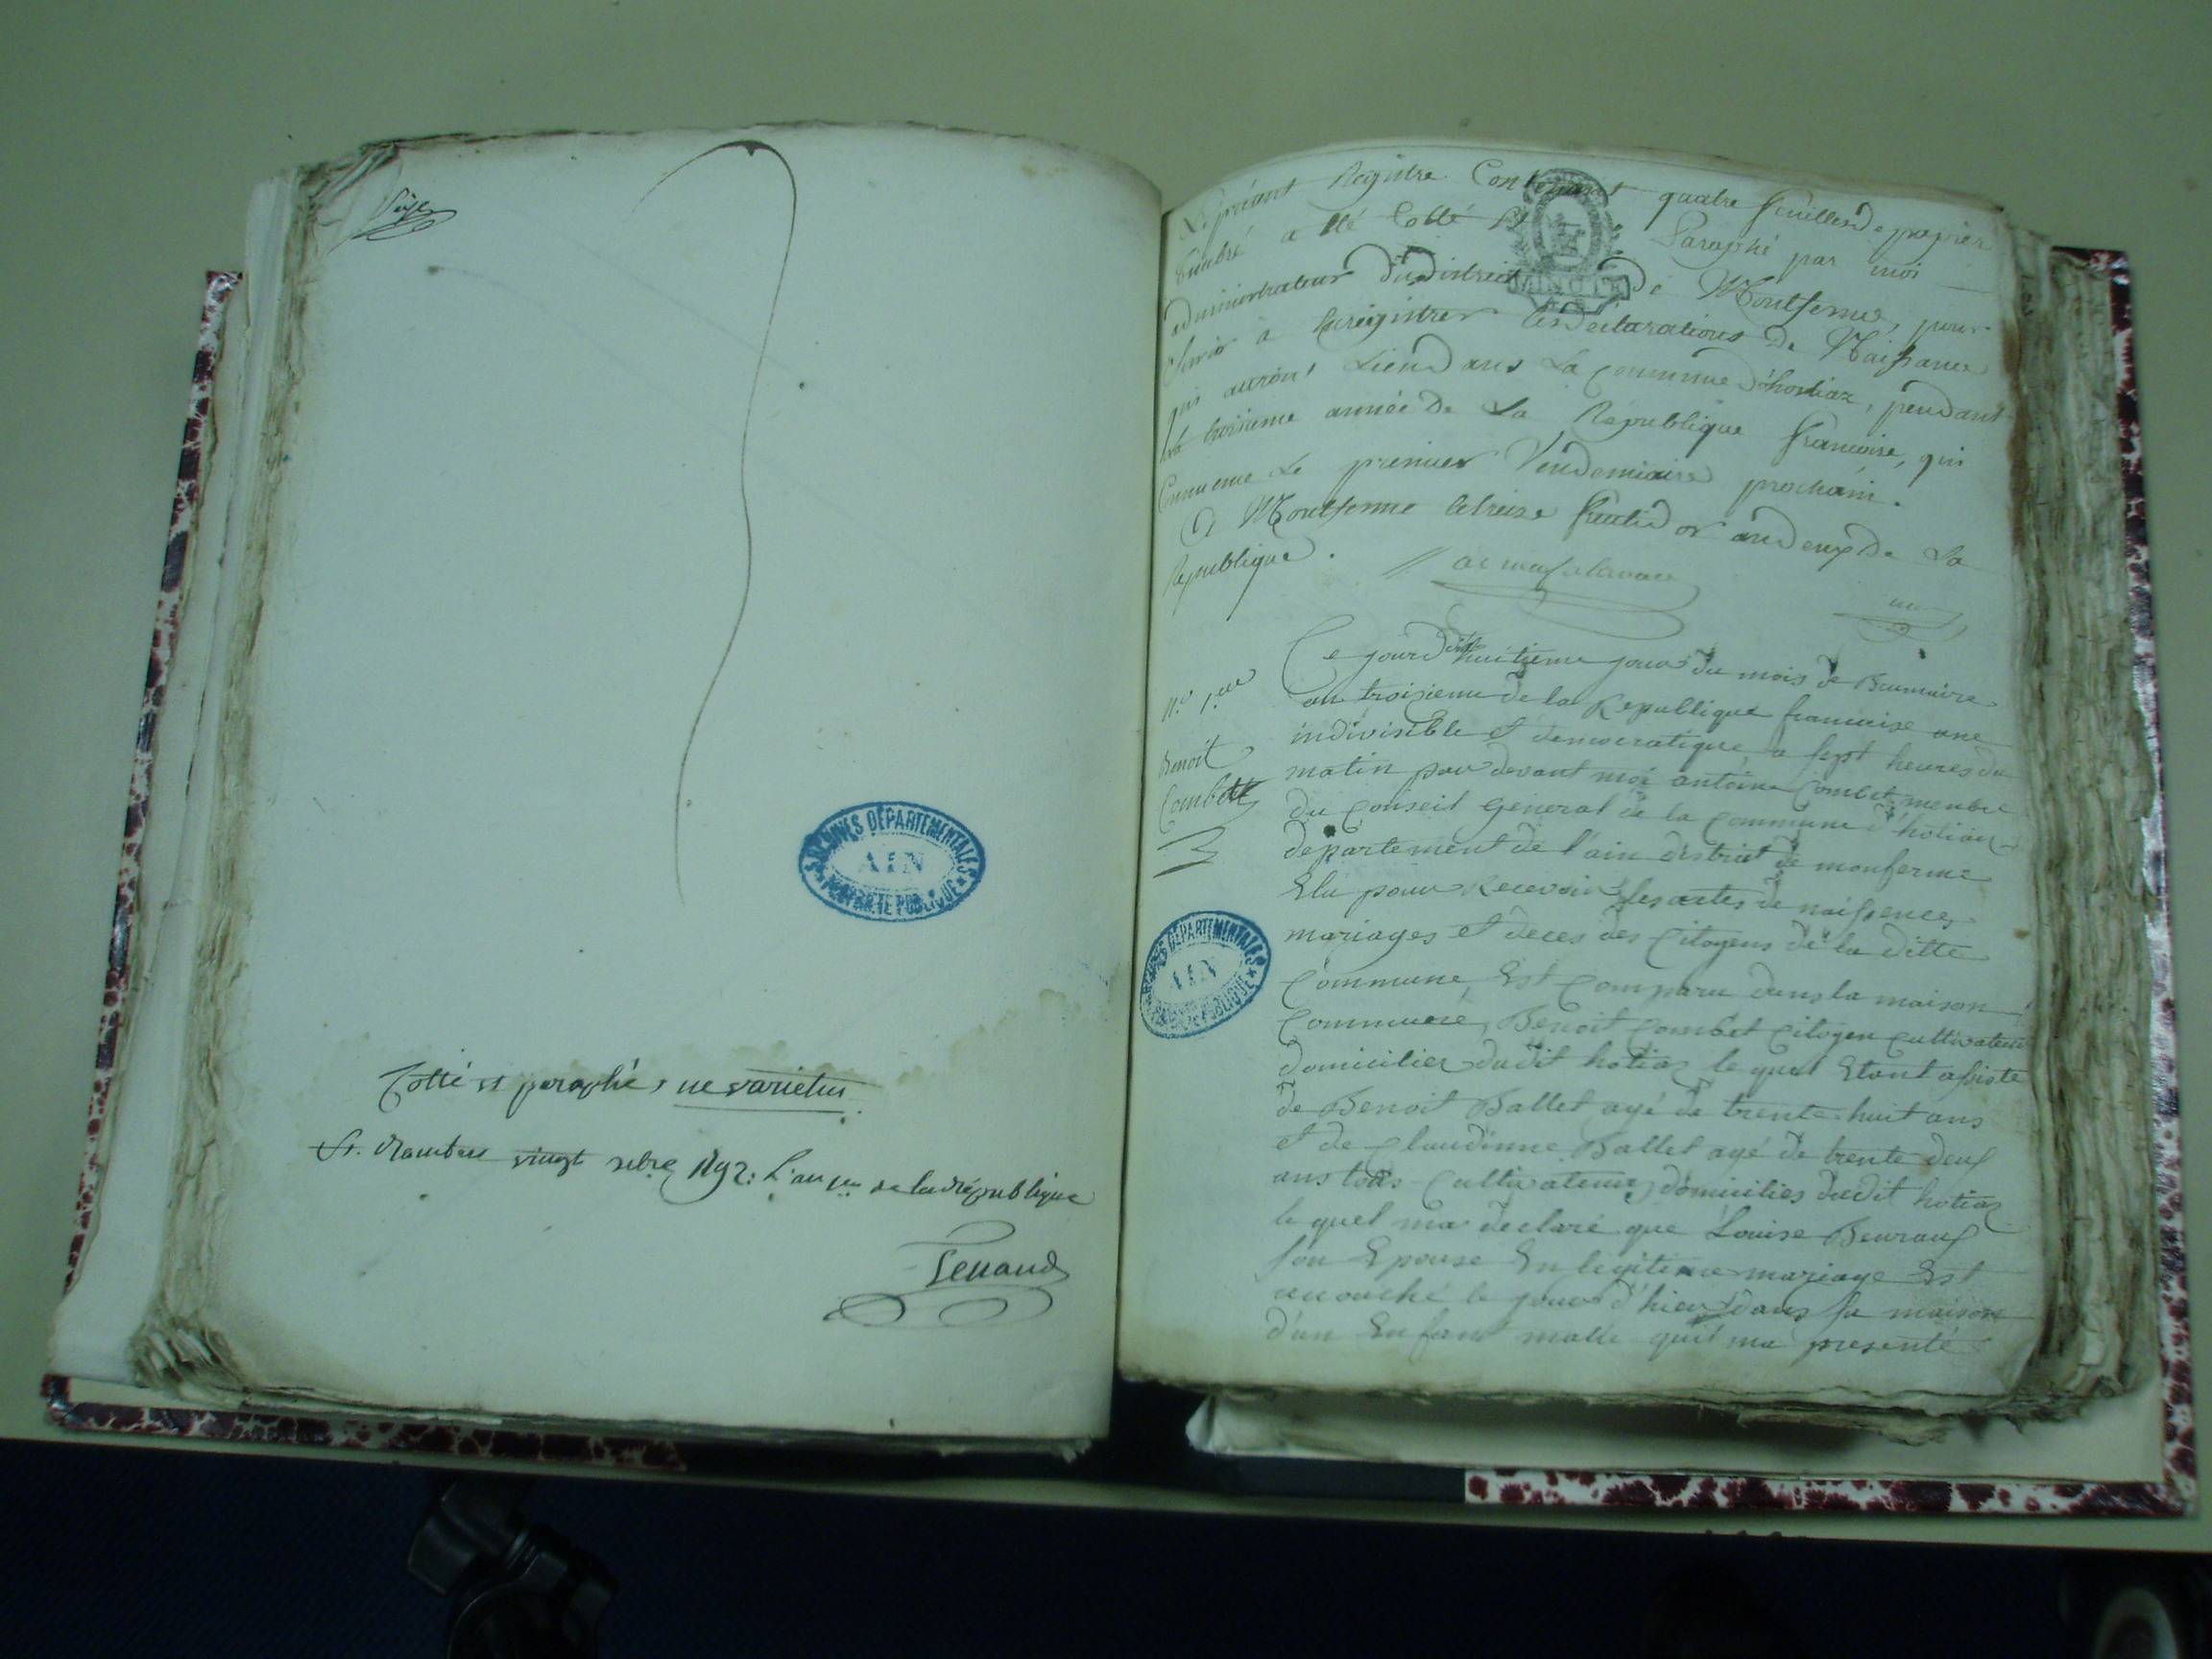 Cotté et paraphé, ne varietur.
St. Rambert vingt xbre 1792. L'an 1er de la république
ARCHIVES DÉPARTEMENTALES
AIN
Le présent Registre Contenant quatre feuilles de papier
timbré a été Cotté et Paraphé par moi
administrateur du district de Montferme, pour
Servir a Enregistrer les déclarations de Naissance
qui auront Lieu dans La Commune d'hostiaz, pendant
la troisieme année de La République francoise, qui
Commence Le premier Vendemiaire prochain.
A Montferme le treize fructidor an deux de La
République.
VINGT
N.o 1er
Benoit
Combet
Ce jourd'hui huitieme jour du mois de Brumaire
an troisieme de la Republique francaise une
indivisible et democratique, a sept heures du
matin par devant moi antoine Combet membre
du Conseil General de la Commune d'hotiaz
departement de l'ain district de monferme
Elu pour Recevoir les actes de naissences
mariages et deces des Citoyens de la ditte
Commune, Est Comparu dans la maison
Commune, Benoit Combet Citoyen Cultivateur
domicilier dudit hotiaz le quel Etant assiste
de Benoit Ballet agé de trente huit ans
et de Claudinne Ballet agé de trente deux
ans tous Cultivateurs domicilies dudit hotiaz
le quel ma declaré que Louise
son Epouse En legitime mariage Est
accouché le jour d'hier dans sa maison
d'un Enfant malle quil ma presenté
ARCHIVES DÉPARTEMENTALES
AIN